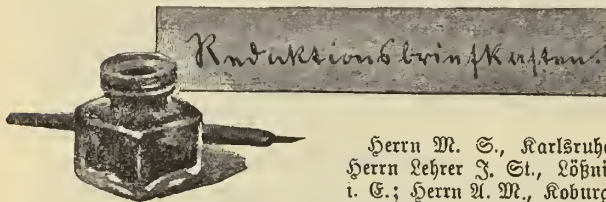 Redaktionsbriefkasten.
Herrn M. S., Karlsruhe
Herrn Lehrer J. St., Lößni
i. E.; Herrn A. M., Koburg